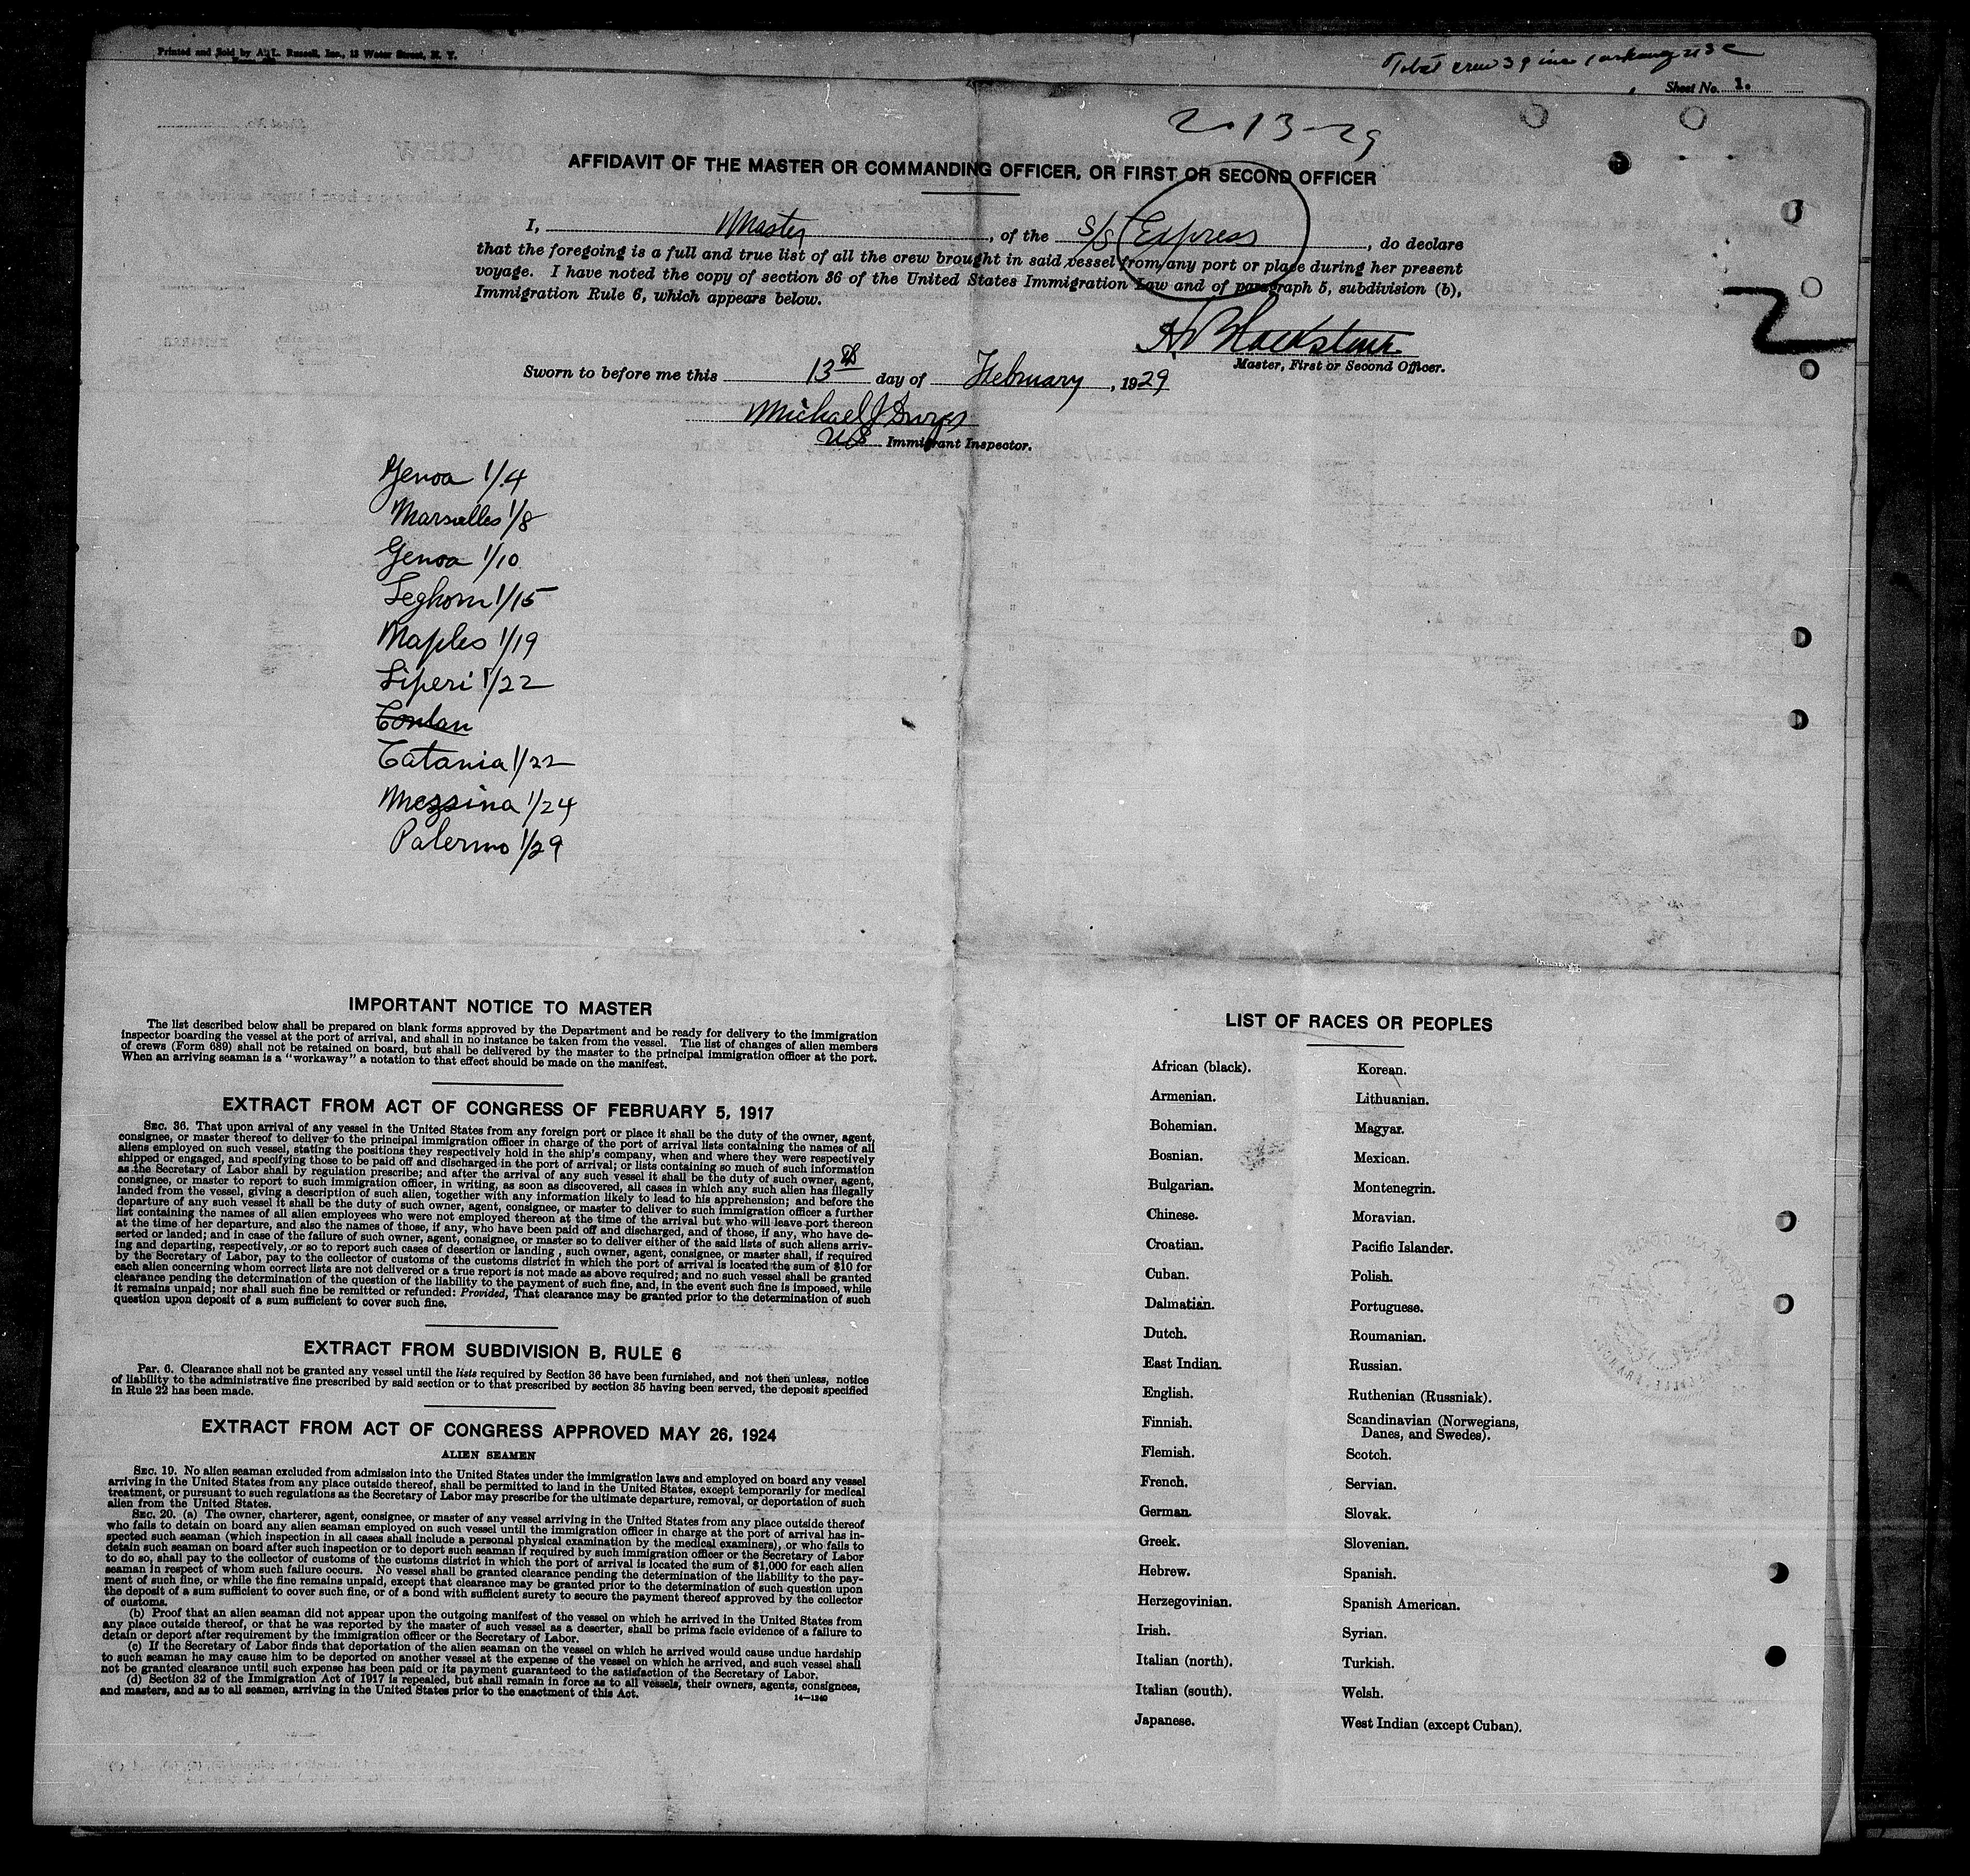 Printed and Sold by A. L. Russell, Inc., 12 Water Street, N. Y.
Total crew 39 inc
Sheet No. 1.
2-13-29
AFFIDAVIT OF THE MASTER OR COMMANDING OFFICER, OR FIRST OR SECOND OFFICER
I, Master, of the S/S Express, do declare
that the foregoing is a full and true list of all the crew brought in said vessel from any port or place during her present
voyage. I have noted the copy of section 36 of the United States Immigration Law and of paragraph 5, subdivision (b),
Immigration Rule 6, which appears below.
Master, First or Second Officer.
Sworn to before me this 13th day of February, 1929
Michael J
US Immigrant Inspector.
2
Genoa 1/4
Marseilles 1/8
Genoa 1/10
Leghorn 1/15
Naples 1/19
Liperi 1/22
Catania 1/22
Mezzina 1/24
Palermo 1/29
IMPORTANT NOTICE TO MASTER
The list described below shall be prepared on blank forms approved by the Department and be ready for delivery to the immigration
inspector boarding the vessel at the port of arrival, and shall in no instance be taken from the vessel. The list of changes of alien members
of crews (Form 689) shall not be retained on board, but shall be delivered by the master to the principal immigration officer at the port.
When an arriving seaman is a "workaway" a notation to that effect should be made on the manifest.
EXTRACT FROM ACT OF CONGRESS OF FEBRUARY 5, 1917
SEC. 36. That upon arrival of any vessel in the United States from any foreign port or place it shall be the duty of the owner, agent,
consignee, or master thereof to deliver to the principal immigration officer in charge of the port of arrival lists containing the names of all
aliens employed on such vessel, stating the positions they respectively hold in the ship's company, when and where they were respectively
shipped or engaged, and specifying those to be paid off and discharged in the port of arrival; or lists containing so much of such information
as the Secretary of Labor shall by regulation prescribe; and after the arrival of any such vessel it shall be the duty of such owner, agent,
consignee, or master to report to such immigration officer, in writing, as soon as discovered, all cases in which any such alien has illegally
landed from the vessel, giving a description of such alien, together with any information likely to lead to his apprehension; and before the
departure of any such vessel it shall be the duty of such owner, agent, consignee, or master to deliver to such immigration officer a further
list containing the names of all alien employees who were not employed thereon at the time of the arrival but who will leave port thereon
at the time of her departure, and also the names of those, if any, who have been paid off and discharged, and of those, if any, who have de-
serted or landed; and in case of the failure of such owner, agent, consignee, or master so to deliver either of the said lists of such aliens arriv-
ing and departing, respectively, or so to report such cases of desertion or landing, such owner, agent, consignee, or master shall, if required
by the Secretary of Labor, pay to the collector of customs of the customs district in which the port of arrival is located the sum of $10 for
each alien concerning whom correct lists are not delivered or a true report is not made as above required; and no such vessel shall be granted
clearance pending the determination of the question of the liability to the payment of such fine, and, in the event such fine is imposed, while
it remains unpaid; nor shall such fine be remitted or refunded: Provided, That clearance may be granted prior to the determination of such
question upon deposit of a sum sufficient to cover such fine.
EXTRACT FROM SUBDIVISION B, RULE 6
Par. 6. Clearance shall not be granted any vessel until the lists required by Section 36 have been furnished, and not then unless, notice
of liability to the administrative fine prescribed by said section or to that prescribed by section 35 having been served, the deposit specified
in Rule 22 has been made.
EXTRACT FROM ACT OF CONGRESS APPROVED MAY 26, 1924
ALIEN SEAMEN
SEC. 19. No alien seaman excluded from admission into the United States under the immigration laws and employed on board any vessel
arriving in the United States from any place outside thereof, shall be permitted to land in the United States, except temporarily for medical
treatment, or pursuant to such regulations as the Secretary of Labor may prescribe for the ultimate departure, removal, or deportation of such
alien from the United States.
SEC. 20. (a) The owner, charterer, agent, consignee, or master of any vessel arriving in the United States from any place outside thereof
who fails to detain on board any alien seaman employed on such vessel until the immigration officer in charge at the port of arrival has in-
spected such seaman (which inspection in all cases shall include a personal physical examination by the medical examiners), or who fails to
detain such seaman on board after such inspection or to deport such seaman if required by such immigration officer or the Secretary of Labor
to do so, shall pay to the collector of customs of the customs district in which the port of arrival is located the sum of $1,000 for each alien
seaman in respect of whom such failure occurs. No vessel shall be granted clearance pending the determination of the liability to the pay-
ment of such fine, or while the fine remains unpaid, except that clearance may be granted prior to the determination of such question upon
the deposit of a sum sufficient to cover such fine, or of a bond with sufficient surety to secure the payment thereof approved by the collector
of customs.
(b) Proof that an alien seaman did not appear upon the outgoing manifest of the vessel on which he arrived in the United States from
any place outside thereof, or that he was reported by the master of such vessel as a deserter, shall be prima facie evidence of a failure to
detain or deport after requirement by the immigration officer or the Secretary of Labor.
(c) If the Secretary of Labor finds that deportation of the alien seaman on the vessel on which he arrived would cause undue hardship
to such seaman he may cause him to be deported on another vessel at the expense of the vessel on which he arrived, and such vessel shall
not be granted clearance until such expense has been paid or its payment guaranteed to the satisfaction of the Secretary of Labor.
(d) Section 32 of the Immigration Act of 1917 is repealed, but shall remain in force as to all vessels, their owners, agents, consignees,
and masters, and as to all seamen, arriving in the United States prior to the enactment of this Act.
14—1240
LIST OF RACES OR PEOPLES
African (black).
Armenian.
Bohemian.
Bosnian.
Bulgarian.
Chinese.
Croatian.
Cuban.
Dalmatian.
Dutch.
East Indian.
English.
Finnish.
Flemish.
French.
German.
Greek.
Hebrew.
Herzegovinian.
Irish.
Italian (north).
Italian (south).
Japanese.
Korean.
Lithuanian.
Magyar.
Mexican.
Montenegrin.
Moravian.
Pacific Islander.
Polish.
Portuguese.
Roumanian.
Russian.
Ruthenian (Russniak).
Scandinavian (Norwegians,
Danes, and Swedes).
Scotch.
Servian.
Slovak.
Slovenian.
Spanish.
Spanish American.
Syrian.
Turkish.
Welsh.
West Indian (except Cuban).